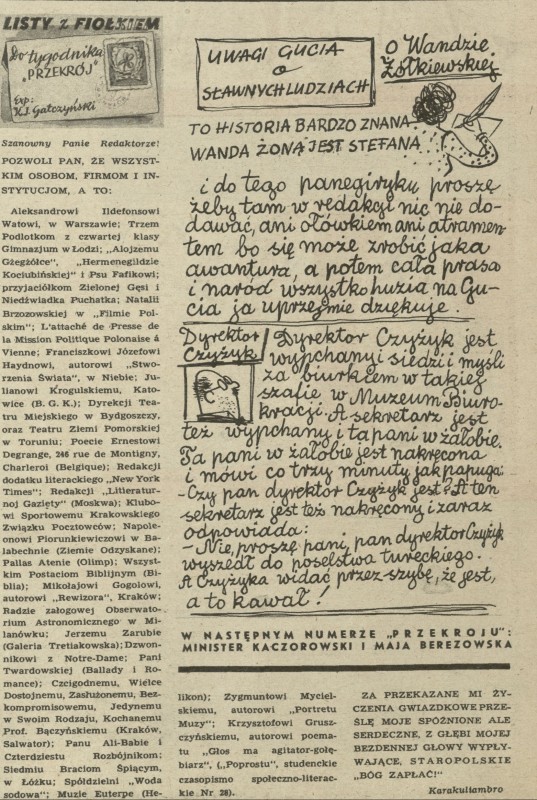 LISTY z FIOŁKIEM
Do tygodnika
"PRZEKRÓJ"
Exp:
K.I. Gałczyński
Szanowny Panie Redaktorze!
POZWOLI PAN, ŻE WSZYST-
KIM OSOBOM, FIRMOM I IN-
STYTUCJOM, A TO:
Aleksandrowi Ildefonsowi
Watowi, w Warszawie; Trzem
Podlotkom z czwartej klasy
Gimnazjum w Łodzi; „Alojzemu
Gżegżółce", „Hermenegildzie
Kociubińskiej" i Psu Fafikowi;
przyjaciółkom Zielonej Gęsi i
Niedźwiadka Puchatka; Natalii
Brzozowskiej w „Filmie Pol-
skim"; L'attaché de Presse de
la Mission Politique Polonaise á
Vienne; Franciszkowi Józefowi
Haydnowi, autorowi „Stwo-
rzenia Świata", w Niebie; Ju-
lianowi Krogulskiemu, Kato-
wice (B. G. K.); Dyrekcji Tea-
tru Miejskiego w Bydgoszczy,
oraz Teatru Ziemi Pomorskiej
w Toruniu; Poecie Ernestowi
Degrange, 246 rue de Montigny,
Charleroi (Belgique); Redakcji
dodatku literackiego „New York
Times"; Redakcji „Litieratur-
noj Gaziety" (Moskwa); Klubo-
wi Sportowemu Krakowskiego
Związku Pocztowców; Napole-
onowi Piorunkiewiczowi w Ba-
labechnie (Ziemie Odzyskane);
Pallas Atenie (Olimp); Wszyst-
kim Postaciom Biblijnym (Bi-
blia); Mikołajowi Gogolowi,
autorowi „Rewizora", Kraków;
Radzie załogowej Obserwato-
rium Astronomicznego w Mi-
lanówku; Jerzemu Zarubie
(Galeria Tretiakowska); Dzwon-
nikowi z Notre-Dame; Pani
Twardowskiej (Ballady i Ro-
mance); Czcigodnemu, Wielce
Dostojnemu, Zasłużonemu, Bez-
kompromisowemu, Jedynemu
w Swoim Rodzaju, Kochanemu
Prof. Bączyńskiemu (Kraków,
Salwator); Panu Ali-Babie i
Czterdziestu Rozbójnikom;
Siedmiu Braciom Śpiącym,
w Łóżku; Spółdzielni „Woda
sodowa"; Muzie Euterpe (He-
likon); Zygmuntowi Myciel-
skiemu, autorowi „Portretu
Muzy"; Krzysztofowi Grusz-
czyńskiemu, autorowi poema-
tu „Głos ma agitator-gołę-
biarz", („Poprostu", studenckie
czasopismo społeczno-literac-
kie Nr 28).
ZA PRZEKAZANE MI ŻY-
CZENIA GWIAZDKOWE PRZE-
ŚLĘ MOJE SPÓŹNIONE ALE
SERDECZNE, Z GŁĘBI MOJEJ
BEZDENNEJ GŁOWY WYPŁY-
WAJĄCE, STAROPOLSKIE
„BÓG ZAPŁAĆ!"
Karakuliambro
UWAGI GUCIA
o
SŁAWNYCH LUDZIACH
O Wandzie
Żółkiewskiej
TO HISTORIA BARDZO ZNANA
WANDA ŻONĄ JEST STEFANA
i do tego panegiryku proszę
żeby tam w redakcji nic nie do-
dawać, ani ołówkiem ani atramen-
tem bo się może zrobić jaka
awantura, a potem cała prasa
i naród wszystko huzia na Gu-
cia ja uprzejmie dziękuję.
Dyrektor
Czyżyk
Dyrektor Czyżyk jest
wypchany i siedzi i myśli
za biurkiem w takiej
szafie w Muzeum Biuro-
kracji. A sekretarz jest
też wypchany i ta pani w żałobie.
Ta pani w żałobie jest nakręcona
i mówi co trzy minuty jak papuga:
- Czy pan dyrektor Czyżyk jest? A ten
sekretarz jest też nakręcony i zaraz
odpowiada:
- Nie, proszę pani, pan dyrektor Czyżyk
wyszedł do poselstwa tureckiego.
A Czyżyka widać przez szybę, że jest,
a to kawał!
W NASTĘPNYM NUMERZE „PRZEKROJU":
MINISTER KACZOROWSKI I MAJA BEREZOWSKA